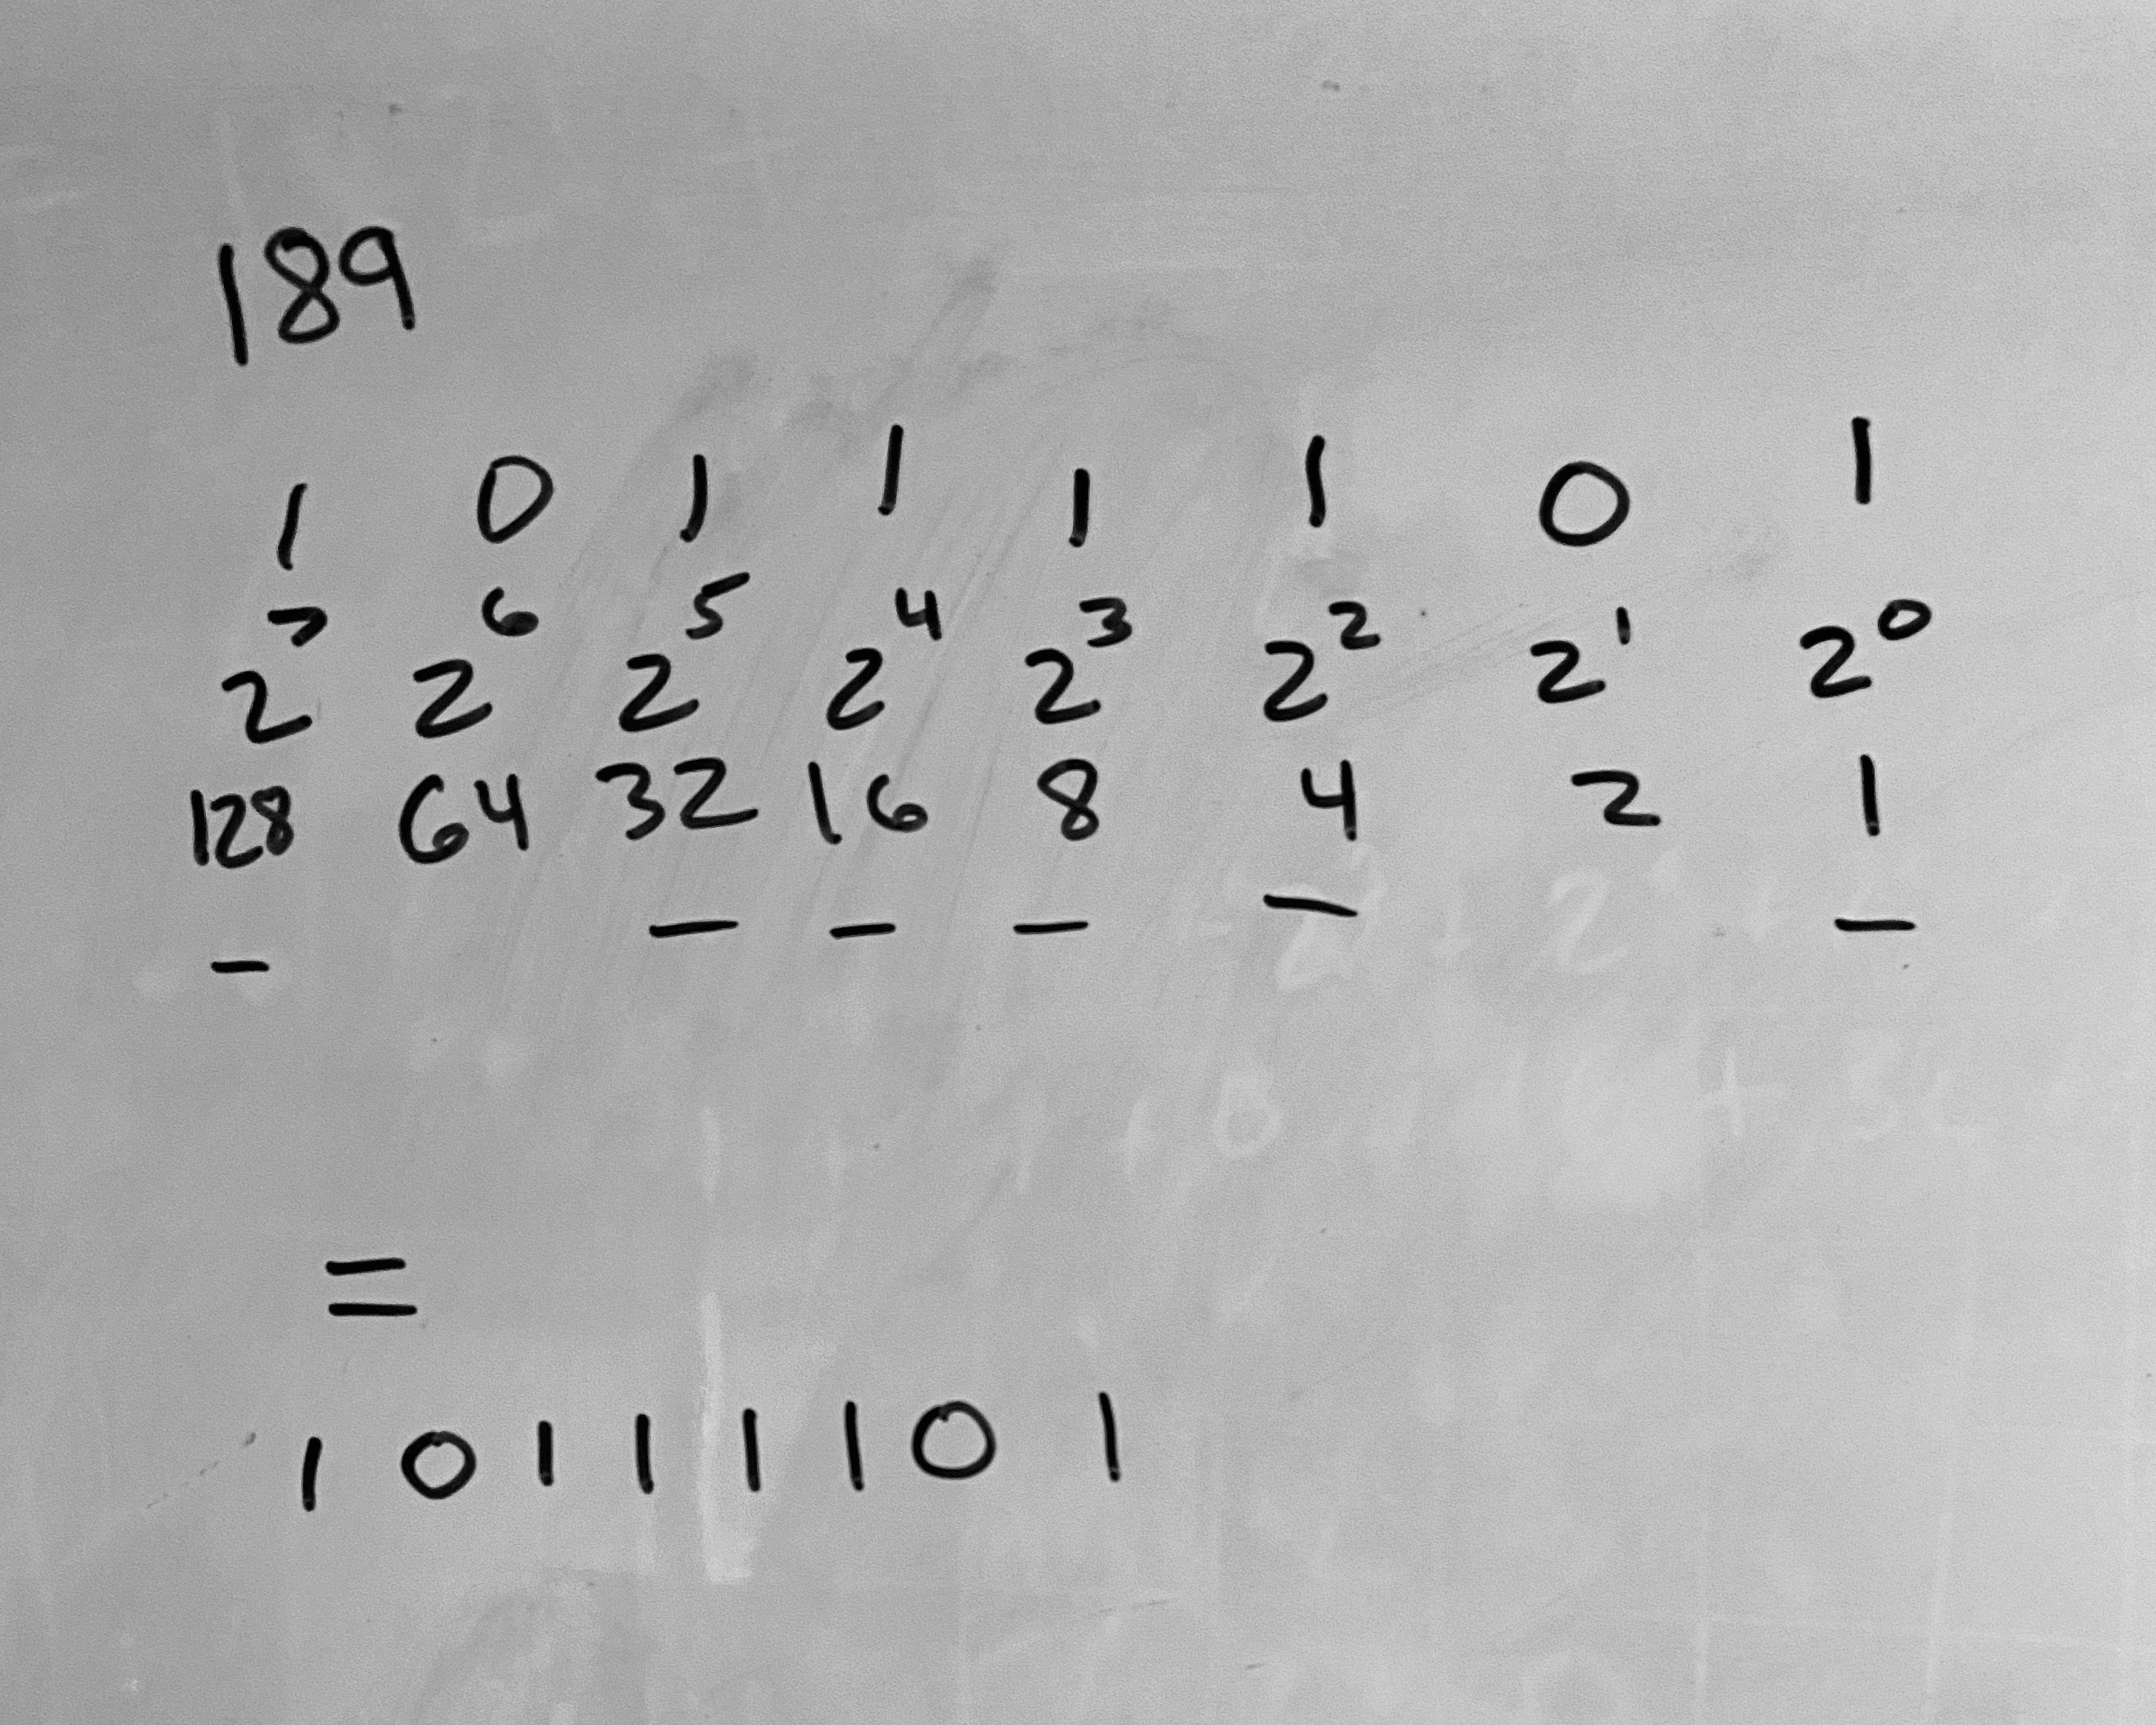 189
1 0 1 1 1 1 0 1
2⁷ 2⁶ 2⁵ 2⁴ 2³ 2² 2¹ 2⁰
128 64 32 16 8 4 2 1
=
1 0 1 1 1 1 0 1